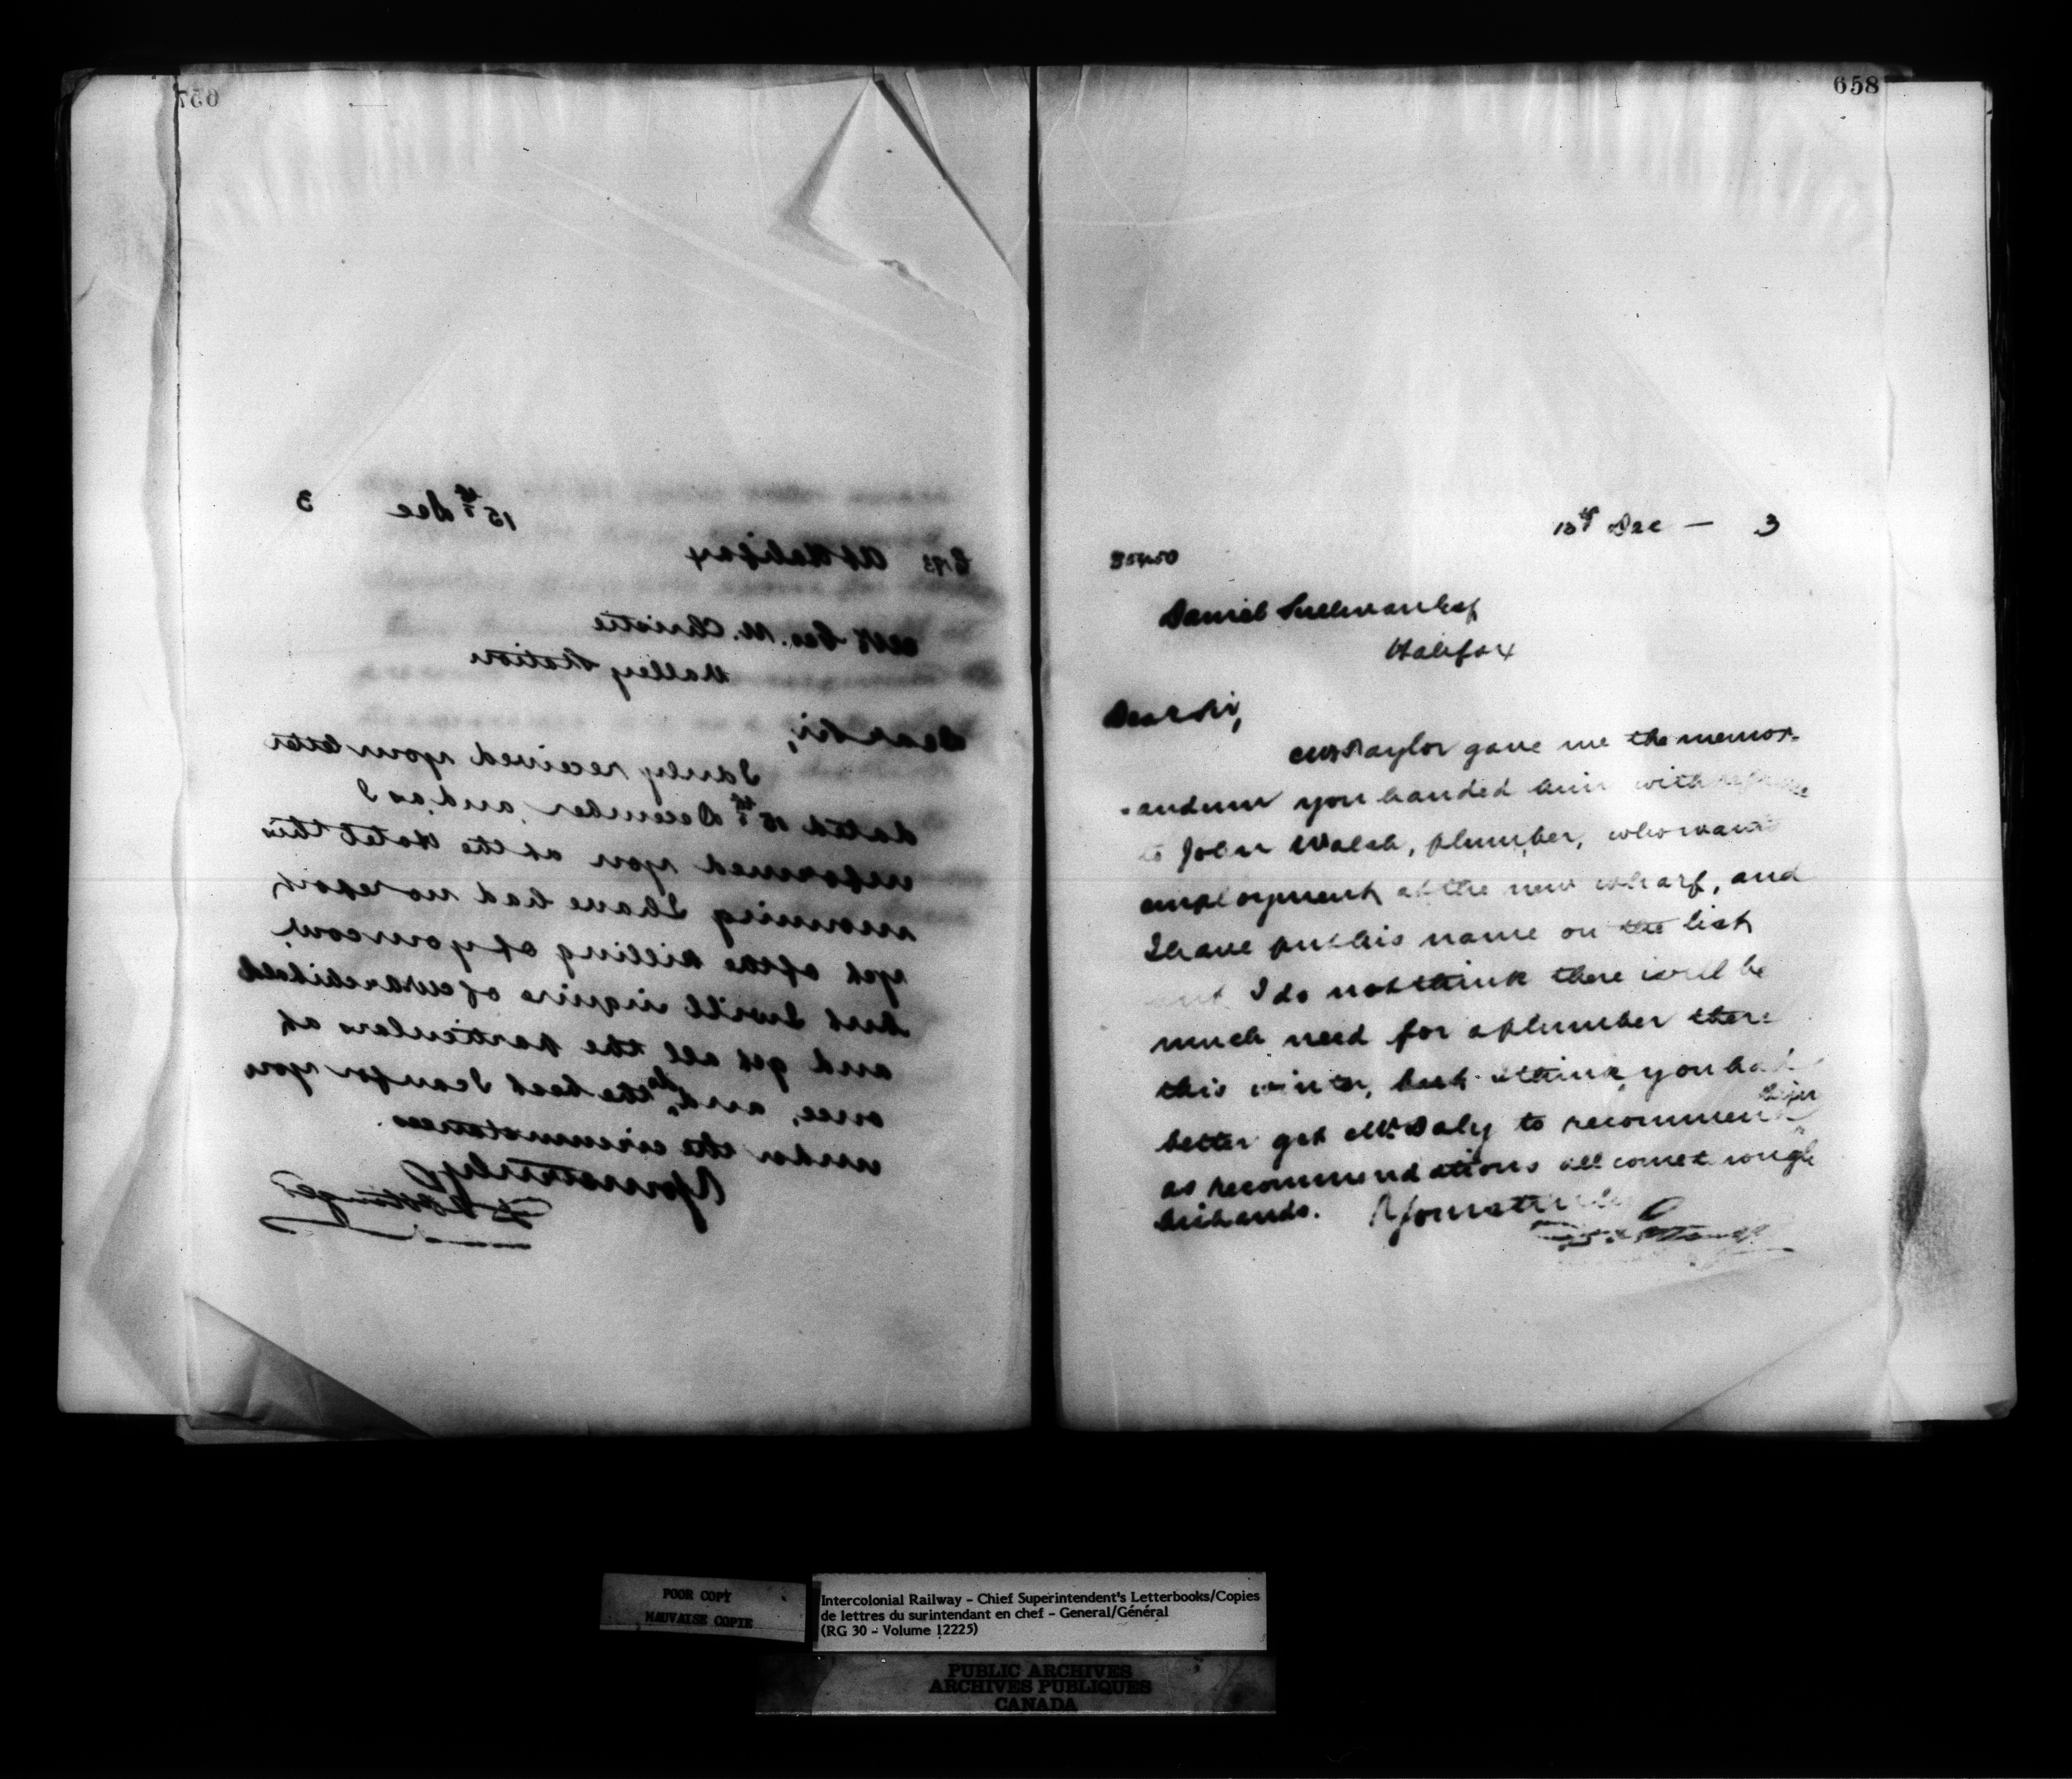 657
15th Dec 3
At Halifax
Mr Geo. M. Christie
Valley Station
Dear Sir,
I duly received your letter
dated 15th December and as I
informed you at the Hotel this
morning I have had no report,
yet of the killing of your cow,
but I will inquire of Mr Archibald
and get all the particulars at
once, and do the best I can for you
under the circumstances.
Yours truly
658
13th Dec — 3
Daniel Sullivan Esq
Halifax
Dear Sir,
Mr Taylor gave me the memor-
-andum you handed him with
to John Walsh, plumber, who wants
employment at the new wharf, and
I have put his name on the list
but I do not think there will be
much need for a plumber there
this winter, but I think you had
better get Mr Daly to recommend him
as recommendations all come through
his hands. Yours truly
POOR COPY
MAUVAISE COPIE
Intercolonial Railway - Chief Superintendent's Letterbooks/Copies
de lettres du surintendant en chef - General/Général
(RG 30 - Volume 12225)
PUBLIC ARCHIVES
ARCHIVES PUBLIQUES
CANADA